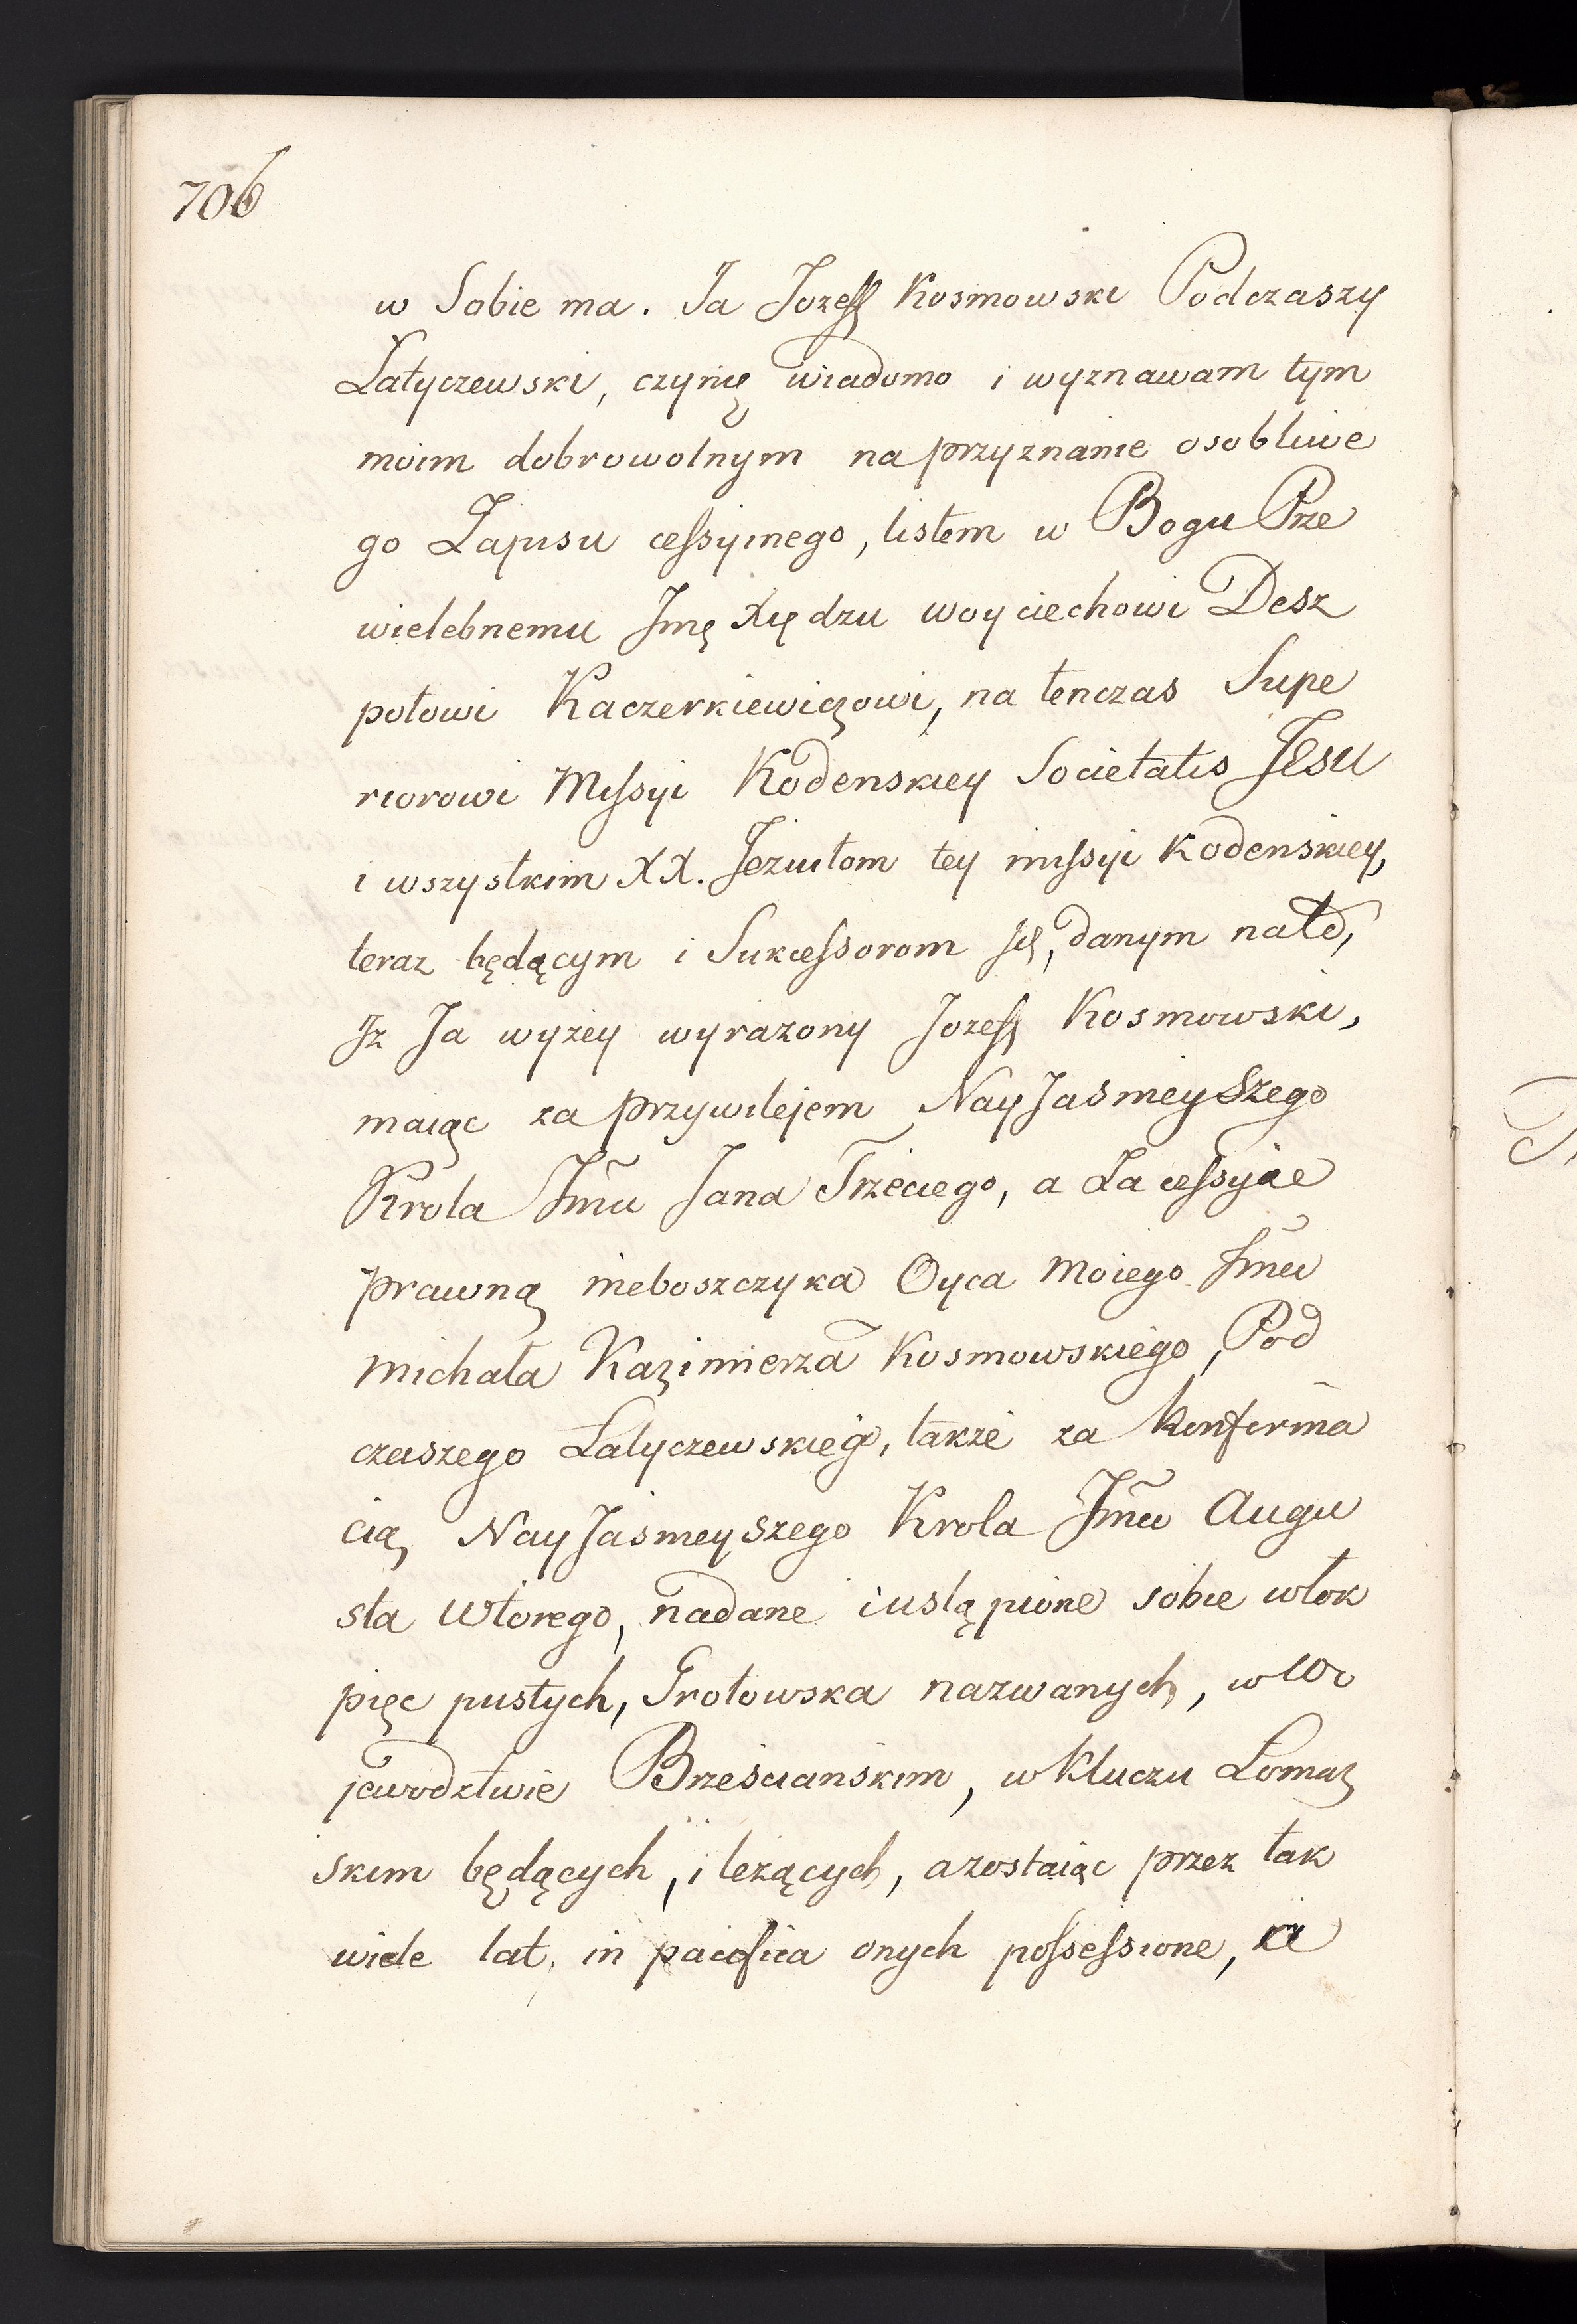 706
w Sobie ma. Ja Jozeff Kosmowski Podczaszy
Latyczewski, czynię wiadomo i wyznawam tym
moim dobrowolnym na przyznanie osobliwe
go Zapisu cessyinego, listem w Bogu Prze
wielebnemu Jmę Xiędzu woyciechowi Desz
potowi Kaczerkiewiczowi, na tenczas Supe
riorowi Missyi Kodenskiey Societatis Jesu
i wszystkim XX. Jezuitom tey missyi Kodenskiey,
teraz będącym i Sukcessorom Jch, danym na to,
Jz Ja wyzey wyrazony Jozeff Kosmowski,
maiąc za przywilejem NayJasnieyszego
Krola Jmu Jana Trzeciego, a Za cessyiae
prawną nieboszczyka Oyca Moiego Jmu
Michała Kazimierza Kosmowskiego, Pod
czaszego Łatyczewskieg, także za konfirma
cią, NayJasnieyszego Krola Jmu Augu
sta Wtorego, nadane i ustąpione sobie włok
pięc pustych, Grotowska nazwanych, w Wo
jewodztwie Brzescianskim, w Kluczu Łomaz
skim będących, i lezących, a zostaiąc przez tak
wiele lat, in pacifica onych possessione,